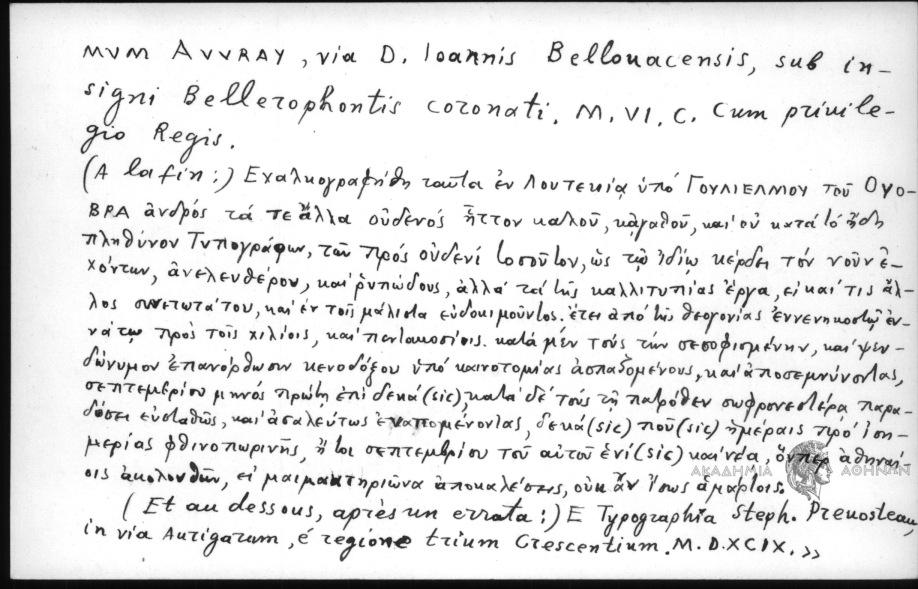 MVM AVVRAY, via D. Ioannis Bellouacensis, sub in-
signi Bellerophontis coronati. M.VI.C. Cum priuile-
gio Regis.
(A la fin:) Εχαλκογραφήθη ταῦτα ἐν Λουτεκίᾳ ὑπό ΓΟΥΛΙΕΛΜΟΥ τοῦ Ογο-
ΒΡΑ ἀνδρός τά τε ἄλλα οὐδενός ἧττον καλοῦ, κἀγαθοῦ, καί οὐ κατά τό ἤδη
πληθύνον Τυπογράφων, τῶν πρός οὐδενί τοσοῦτον, ὡς τῷ ἰδίῳ κέρδει τόν νοῦν ἐ-
χόντων, ἀνελευθέρον, καί ῥυπώδους, ἀλλά τά τῆς καλλιτυπίας ἔργα, εἰ καί τις ἄλ-
λος συνετωτάτου, καί ἐν τοῖς μάλιστα εὐδοκιμοῦντος. ἔτει ἀπό τῆς θεογονίας ἐννενηκοστῷ ἐν-
νάτῳ πρός τοῖς χιλίοις, καί πεντακοσίοις. κατά μέν τούς τήν σεσοφισμένην, καί ψευ-
δώνυμον ἐπανόρθωσιν κενοδόξου ὑπό καινοτομίας ἀσπαζομένους, καί ἀποσεμνύνοντας,
σεπτεμβρίου μηνός πρώτῃ ἐπί δεκά (sic), κατά δέ τούς τῇ πατρόθεν σωφρονεστέρᾳ παρα-
δόσει εὐσταθῶς, καί ἀσαλεύτως ἐναπομένοντας, δεκά (sic) που (sic) ἡμέραις πρό ἰση-
μερίας φθινοπωρινῆς, ἤτοι σεπτεμβρίου τοῦ αὐτοῦ ἑνί (sic) καί νέᾳ, ὅνπερ ἀθηναί-
οις ἀκολουθῶν, εἰ μαιμακτηριῶνα ἀποκαλέσεις, οὐκ ἄν ἴσως ἁμάρτοις.
(Et au dessous, après un errata:) E Typographia Steph. Preuosteau,
in via Aurigarum, é regione trium Crescentium. M.D.XCIX. »
ΑΚΑΔΗΜΙΑ ΑΘΗΝΩΝ